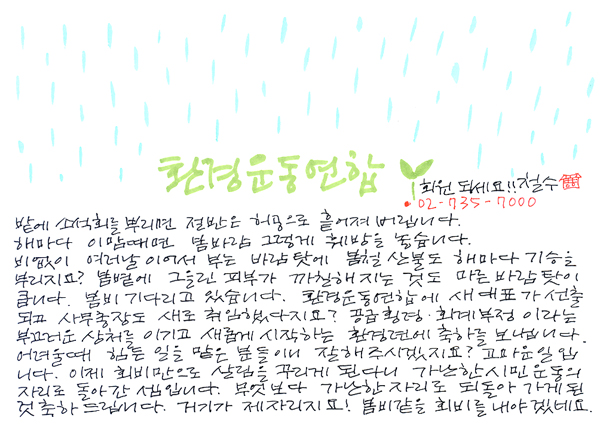 환경운동연합
회원 되세요!! 철수
02-735-7000
밭에 소석회를 뿌리면 절반은 허공으로 흩어져 버립니다.
해마다 이맘때면 봄바람 그렇게 훼방을 놓습니다.
비없이 여러날 이어서 부는 바람 탓에 봄철 산불도 해마다 기승을
부리지요? 봄볕에 그을린 피부가 까칠해 지는 것도 마른 바람 탓이
큽니다. 봄비 기다리고 있습니다. 환경운동연합에 새 대표가 선출
되고 사무총장도 새로 취임했다지요? 공금횡령·회계부정 이라는
부끄러운 상처를 이기고 새롭게 시작하는 환경련에 축하를 보냅니다.
어려울때 힘든 일을 맡은 분들이니 잘해주시겠지요? 고마운일입
니다. 이제 회비만으로 살림을 꾸리게 된다니 가난한 시민운동의
자리로 돌아간 셈입니다. 무엇보다 가난한 자리로 되돌아 가게된
것 축하 드립니다. 거기가 제자리지요! 봄비같은 회비를 내야 겠네요.